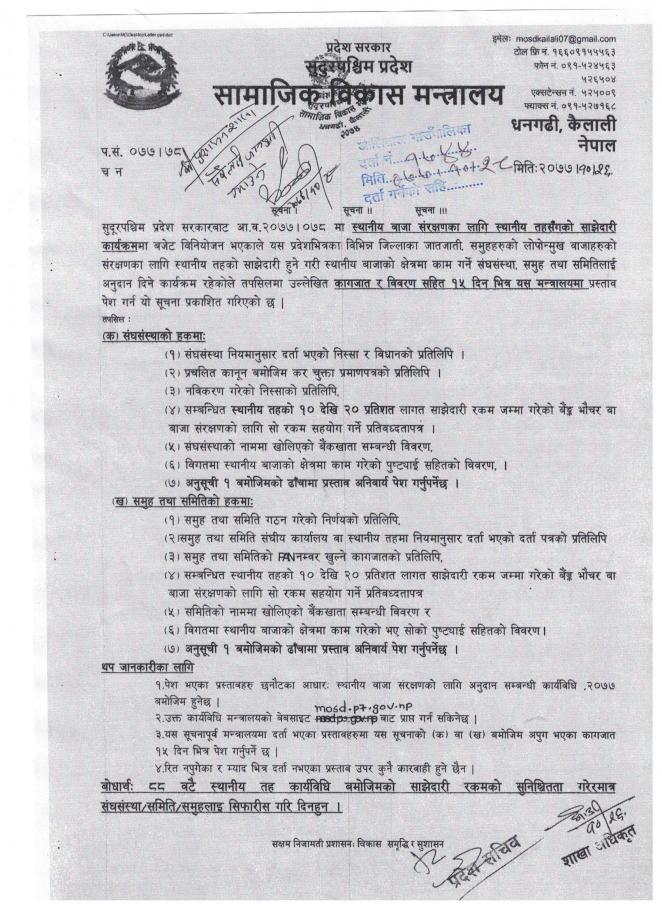 प्रदेश सरकार
सुदूरपश्चिम प्रदेश
सामाजिक विकास मन्त्रालय
इमेलः mosdkailali07@gmail.com
टोल फ्रि नं. १६६०९१५५५६३
फोन नं. ०९१-५२४५६३
५२६५०४
एक्सटेन्सन नं. ५२५००९
फ्याक्स नं. ०९१-५२७१६८
धनगढी, कैलाली
नेपाल
सामाजिक विकास मन्त्रालय
धनगढी, कैलाली
२०७४
प.सं. ०७७।७८
च न
गाउँपालिका
दर्ता नं.
मिति
दर्ता गर्नेको सहि
मितिः २०७७।१०।२६
सूचना । सूचना ।। सूचना ।।।
सुदूरपश्चिम प्रदेश सरकारबाट आ.व.२०७७।०७८ मा स्थानीय बाजा संरक्षणका लागि स्थानीय तहसँगको साझेदारी
कार्यक्रममा बजेट विनियोजन भएकाले यस प्रदेशभित्रका विभिन्न जिल्लाका जातजाती, समुहहरुको लोपोन्मुख बाजाहरुको
संरक्षणका लागि स्थानीय तहको साझेदारी हुने गरी स्थानीय बाजाको क्षेत्रमा काम गर्ने संघसंस्था, समुह तथा समितिलाई
अनुदान दिने कार्यक्रम रहेकोले तपसिलमा उल्लेखित कागजात र विवरण सहित १५ दिन भित्र यस मन्त्रालयमा प्रस्ताव
पेश गर्न यो सूचना प्रकाशित गरिएको छ ।
तपसिल :
(क) संघसंस्थाको हकमाः
(१) संघसंस्था नियमानुसार दर्ता भएको निस्सा र विधानको प्रतिलिपि ।
(२) प्रचलित कानून बमोजिम कर चुक्ता प्रमाणपत्रको प्रतिलिपि ।
(३) नविकरण गरेको निस्साको प्रतिलिपि,
(४) सम्बन्धित स्थानीय तहको १० देखि २० प्रतिशत लागत साझेदारी रकम जम्मा गरेको बैङ्क भौचर वा
बाजा संरक्षणको लागि सो रकम सहयोग गर्ने प्रतिबध्दतापत्र ।
(५) संघसंस्थाको नाममा खोलिएको बैंकखाता सम्बन्धी विवरण,
(६) विगतमा स्थानीय बाजाको क्षेत्रमा काम गरेको पुष्ट्याई सहितको विवरण, ।
(७) अनुसूची १ बमोजिमको ढाँचामा प्रस्ताव अनिवार्य पेश गर्नुपर्नेछ ।
(ख) समुह तथा समितिको हकमाः
(१) समुह तथा समिति गठन गरेको निर्णयको प्रतिलिपि,
(२)समुह तथा समिति संघीय कार्यालय वा स्थानीय तहमा नियमानुसार दर्ता भएको दर्ता पत्रको प्रतिलिपि
(३) समुह तथा समितिको PAN नम्बर खुल्ने कागजातको प्रतिलिपि,
(४) सम्बन्धित स्थानीय तहको १० देखि २० प्रतिशत लागत साझेदारी रकम जम्मा गरेको बैङ्क भौचर वा
बाजा संरक्षणको लागि सो रकम सहयोग गर्ने प्रतिबध्दतापत्र
(५) समितिको नाममा खोलिएको बैंकखाता सम्बन्धी विवरण र
(६) विगतमा स्थानीय बाजाको क्षेत्रमा काम गरेको भए सोको पुष्ट्याई सहितको विवरण।
(७) अनुसूची १ बमोजिमको ढाँचामा प्रस्ताव अनिवार्य पेश गर्नुपर्नेछ ।
थप जानकारीका लागि
१.पेश भएका प्रस्तावहरु छनौटका आधारः स्थानीय बाजा संरक्षणको लागि अनुदान सम्बन्धी कार्यविधि ,२०७७
बमोजिम हुनेछ ।
mosd.p7.gov.np
२.उक्त कार्यविधि मन्त्रालयको वेबसाइट बाट प्राप्त गर्न सकिनेछ ।
३.यस सूचनापूर्व मन्त्रालयमा दर्ता भएका प्रस्तावहरुमा यस सूचनाको (क) वा (ख) बमोजिम अपुग भएका कागजात
१५ दिन भित्र पेश गर्नुपर्ने छ ।
४.रित नपुगेका र म्याद भित्र दर्ता नभएका प्रस्ताव उपर कुनै कारबाही हुने छैन ।
बोधार्थः ८८ वटै स्थानीय तह कार्यविधि बमोजिमको साझेदारी रकमको सुनिश्चितता गरेरमात्र
संघसंस्था/समिति/समुहलाइ सिफारीस गरि दिनहुन ।
सक्षम निजामती प्रशासनः विकास समृद्धि र सुशासन
प्रदेश सचिव
१०/२६
शाखा अधिकृत